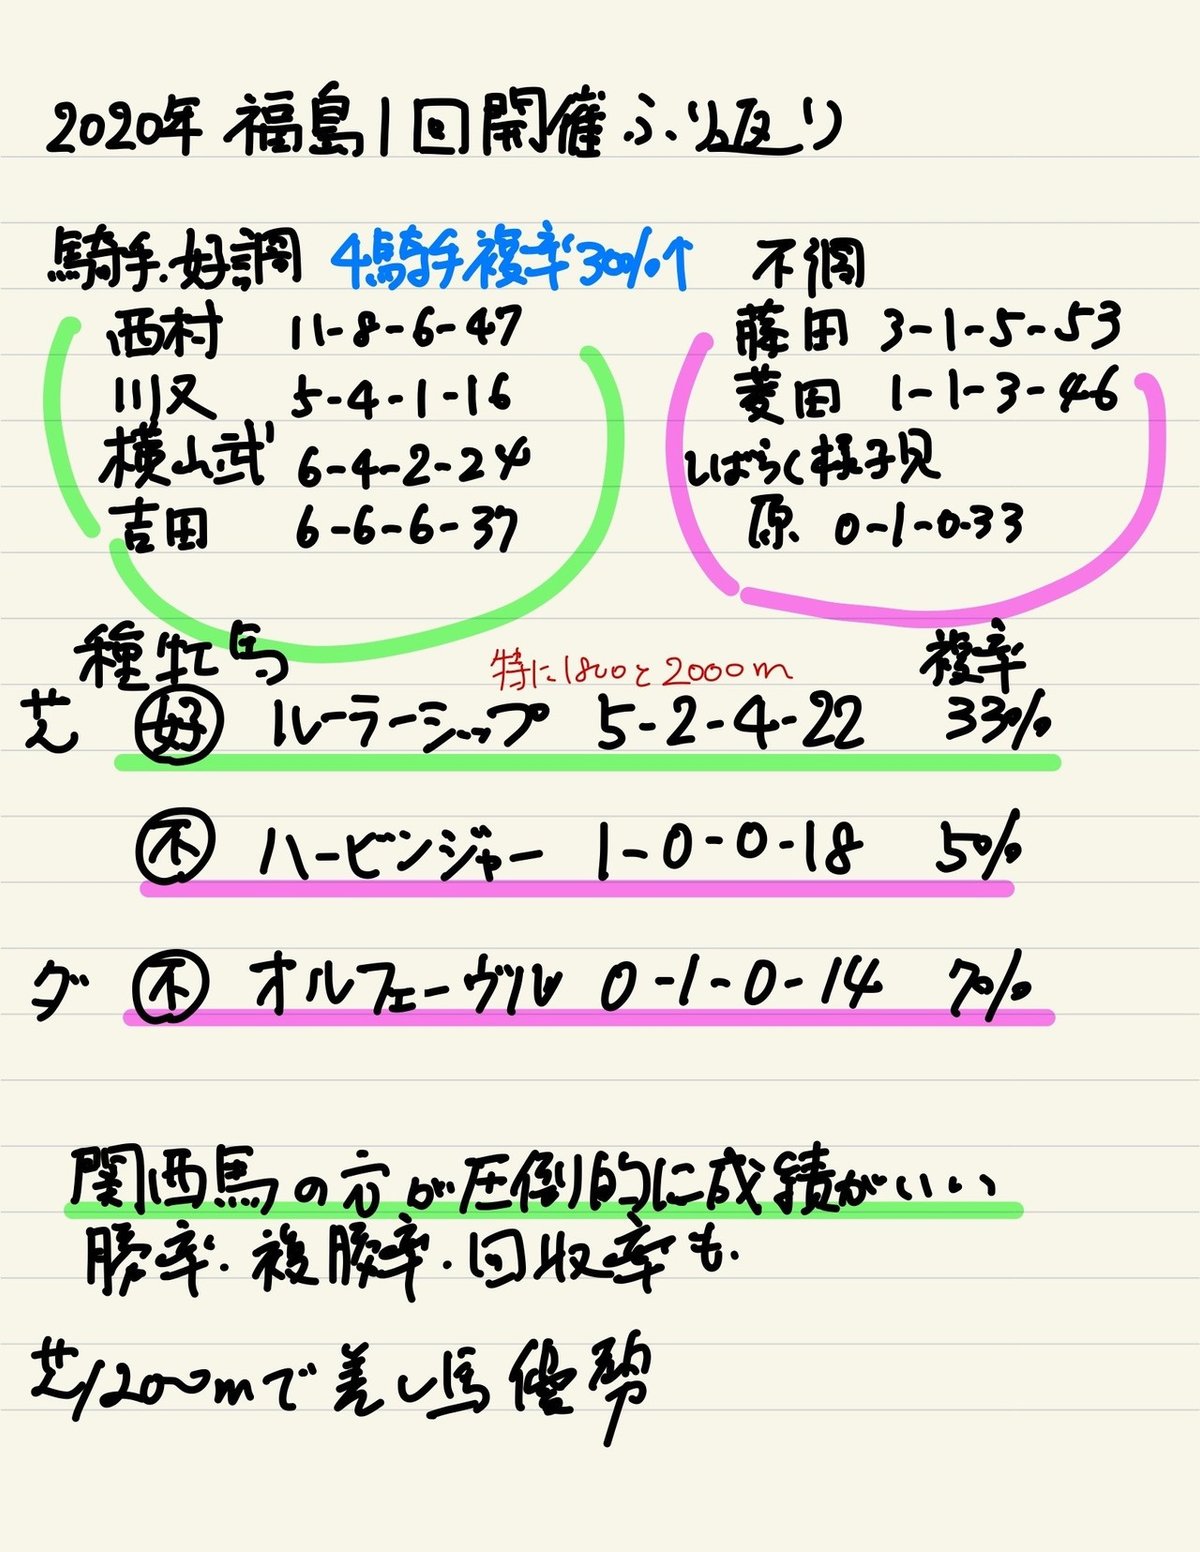 2020年 福島1回開催ふり返り
騎手.好調 4騎手複率30%↑ 不調
西村 11-8-6-47 藤田 3-1-5-53
川又 5-4-1-16 菱田 1-1-3-46
横山武 6-4-2-24 しばらく様子見
吉田 6-6-6-37 原 0-1-0-33
種牡馬 特に1800と2000m 複率
芝 好 ルーラーシップ 5-2-4-22 33%
不 ハービンジャー 1-0-0-18 5%
ダ 不 オルフェーヴル 0-1-0-14 7%
関西馬の方が圧倒的に成績がいい
勝率.複勝率.回収率も.
芝1200mで差し馬優勢